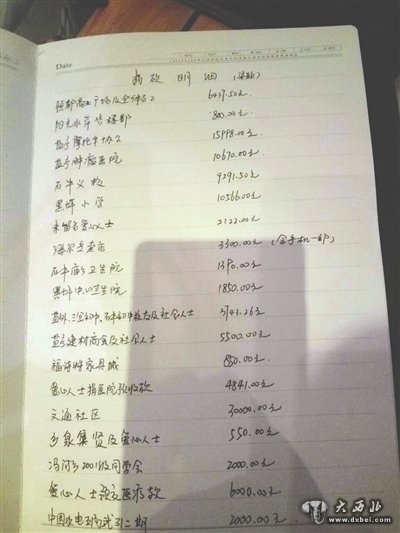 Date
捐款明细(染款)
6457.50元
阳光水岸售楼部 800.00元
盐亭摩托车协会 15998.00元
盐亭肿瘤医院 10670.00元
石牛义校 9291.50元
黑坪小学 10566.00元
未留名爱心人士 2122.00元
海尔专卖店 3300.00元(含手机一部)
石牛庙乡卫生院 1390.00元
黑坪中心卫生院 1850.00元
及社会人士 3743.26元
盐亭建材商会及社会人士 5500.00元
福诗特家具城 850.00元
爱心人士捐医院预收款 4841.00元
文通社区 30000.00元
乡泉集贤及爱心人士 550.00元
冯河乡2001级同学会 2000.00元
爱心人士预交医疗款 6000.00元
中国水电 二期 2000.00元
大西北
www.dxbei.com